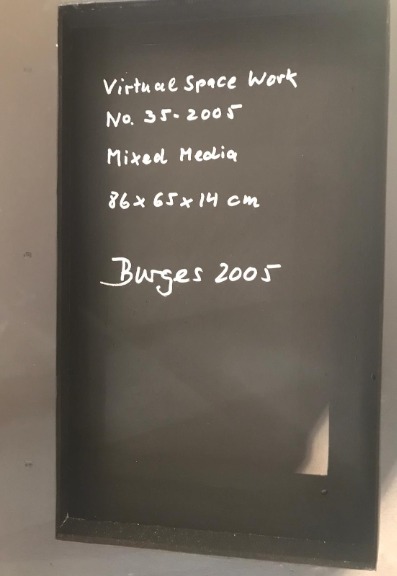 Virtual Space Work
No. 35-2005
Mixed Media
86 x 65 x 14 cm
Burges 2005